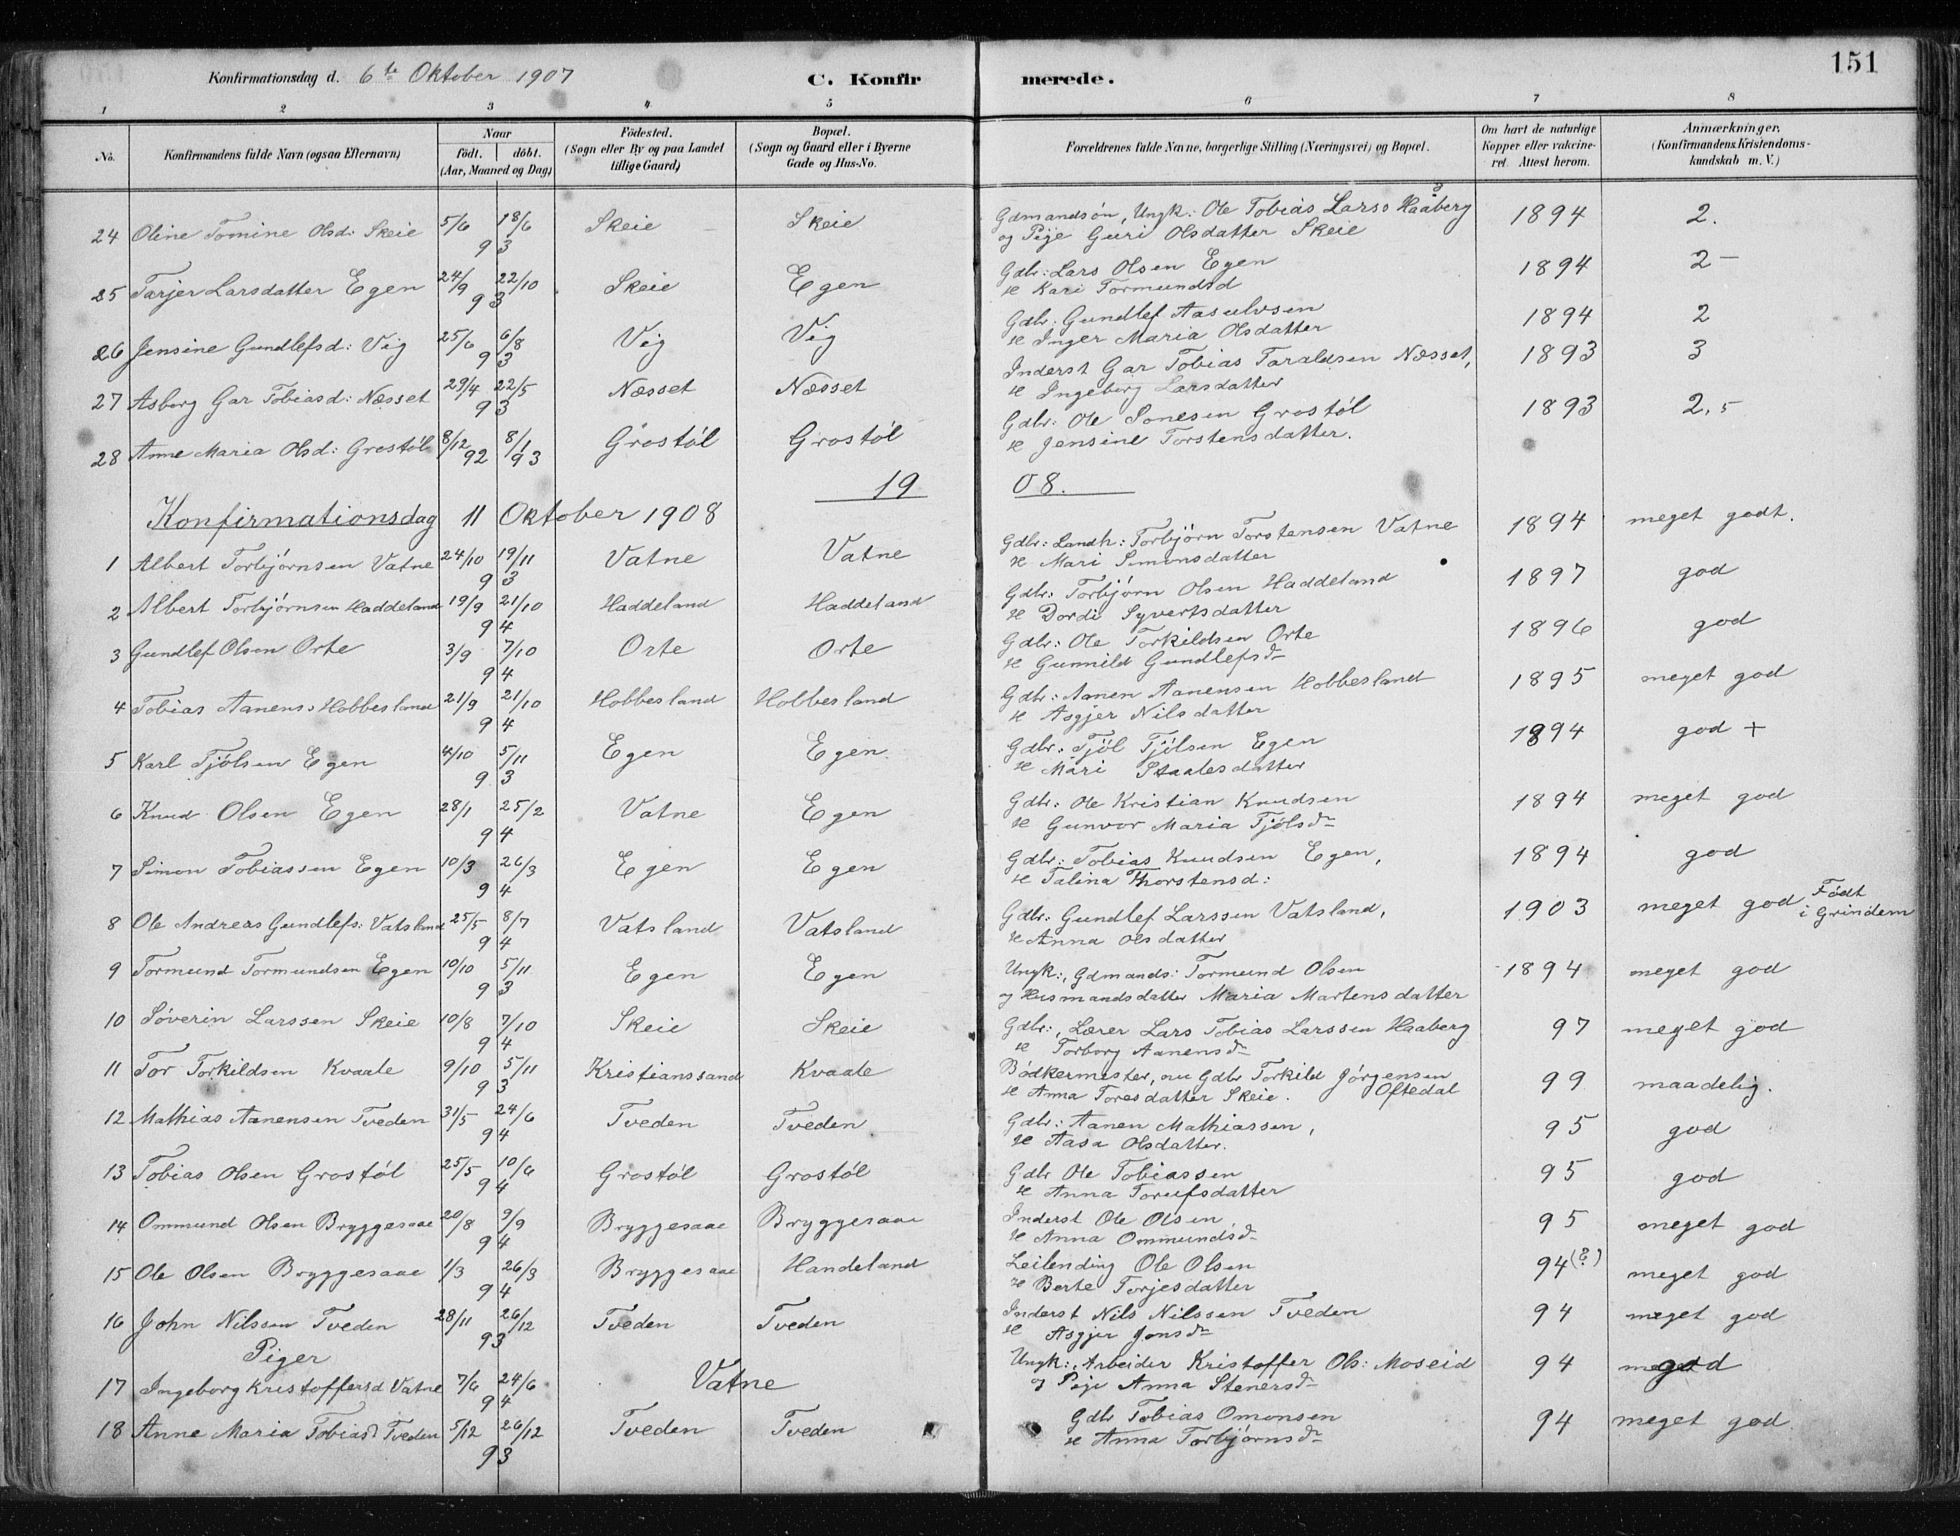 151
Konfirmationsdag d. 6te Oktober 1907 C. Konfir merede.
1 2 3 4 5 6 7 8
No. Konfirmandens fulde Navn (ogsaa Efternavn) Naar födt. döbt. (Aar, Maaned og Dag) Födested. (Sogn eller By og paa Landet tillige Gaard) Bopæl. (Sogn og Gaard eller i Byerne Gade og Hus-No. Forældrenes fulde Navne, borgerlige Stilling (Næringsvei) og Bopæl. Om havt de naturlige Kopper eller vakcineret. Attest herom. Anmærkninger. (Konfirmandens Kristendomskundskab m. V.)
24 Oline Tomine Olsd: Skeie 5/6 18/6 93 Skeie Skeie Gdmandsøn, Ungk: Ole Tobias Larss Haaberg 1894 2.
og Pige Guri Olsdatter Skeie
25 Tarjer Larsdatter Egen 24/9 22/10 93 Skeie Egen Gdbr: Lars Olsen Egen 1894 2 –
H Kari Tormundsd
26 Jensine Gundlefsd: Vig 25/6 6/8 93 Vig Vig Gdbr: Gundlef Aasulvsen 1894 2
H Inger Maria Olsdatter
27 Asborg Gar Tobiasd: Næsset 29/4 22/5 93 Næsset Næsset Inderst Gar Tobias Taraldsen Næsset, 1893 3
H Ingeborg Larsdatter
28 Anne Maria Olsd: Grostøl 8/12 92 8/1 93 Grostøl Grostøl Gdbr: Ole Sonesen Grostøl 1893 2,5
H Jensine Torstensdatter.
19 08.
Konfirmationsdag 11 Oktober 1908
1 Albert Torbjørnsen Vatne 24/10 19/11 93 Vatne Vatne Gdbr: Landh: Torbjørn Torstensen Vatne 1894 meget godt.
H Mari Simonsdatter
2 Albert Torbjørnsen Haddeland 19/9 21/10 94 Haddeland Haddeland Gdbr: Torbjørn Olsen Haddeland 1897 god
H Dordi Syvertsdatter
3 Gundlef Olsen Orte 3/9 7/10 94 Orte Orte Gdbr: Ole Torkildsen Orte 1896 god
H Gunnild Gundlefsdr
4 Tobias Aanens: Hobbesland 21/9 21/10 94 Hobbesland Hobbesland Gdbr: Aanen Aanensen Hobbesland 1895 meget god
H Asgjer Nilsdatter
5 Karl Tjølsen Egen 4/10 5/11 93 Egen Egen Gdbr: Tjøl Tjølsen Egen 1894 god +
H Mari Staalesdatter
6 Knud Olsen Egen 28/1 25/2 94 Vatne Egen Gdbr: Ole Kristian Knudsen 1894 meget god
H Gunvor Maria Tjølsdr
7 Simon Tobiassen Egen 10/3 26/3 94 Egen Egen Gdbr: Tobias Knudsen Egen, 1894 god
H Talina Thorstensd:
8 Ole Andreas Gundlefs: Vatsland 25/5 8/7 94 Vatsland Vatsland Gdbr: Gundlef Larssen Vatsland, 1903 meget god Født i Grindem
H Anna Olsdatter
9 Tormund Tormundsen Egen 10/10 5/11 93 Egen Egen Ungk:, Gdmands: Tormund Olsen 1894 meget god
og Husmandsdatter Maria Martensdatter
10 Søverin Larssen Skeie 10/8 7/10 94 Skeie Skeie Gdbr:, Lærer Lars Tobias Larssen Haaberg 97 meget god
H Torborg Aanensdr
11 Tor Torkildsen Kvaale 9/10 5/11 93 Kristianssand Kvaale Bødkermester, nu Gdbr Torkild Jørgensen Oftedal 99 maadelig.
H Anna Toresdatter Skeie.
12 Mathias Aanensen Tveden 31/5 24/6 94 Tveden Tveden Gdbr: Aanen Mathiassen, 95 god
H Aasa Olsdatter.
13 Tobias Olsen Grostøl 25/5 10/6 94 Grostøl Grostøl Gdbr Ole Tobiassen 95 god
H Anna Torufsdatter
14 Ommund Olsen Bryggesaae 20/8 9/9 94 Bryggesaae Bryggesaae Inderst Ole Olsen 95 meget god
H Anna Ommundsdr
15 Ole Olsen Bryggesaae 1/3 26/3 94 Bryggesaae Handeland Leilending Ole Olsen 94(?) meget god
H Berte Torjesdatter
16 John Nilssen Tveden 28/11 26/12 93 Tveden Tveden Inderst Nils Nilssen Tveden 94 meget god
H Asgjer Jonsdr
Piger
17 Ingeborg Kristoffersd Vatne 7/6 24/6 94 Vatne Ungk:, Arbeider Kristoffer Ols: Moseid 94 god
og Pige Anna Stenersdr
18 Anne Maria Tobiasd Tveden 5/12 26/12 93 Tveden Tveden Gdbr Tobias Omonsen 94 meget god
H Anna Torbjørnsdr